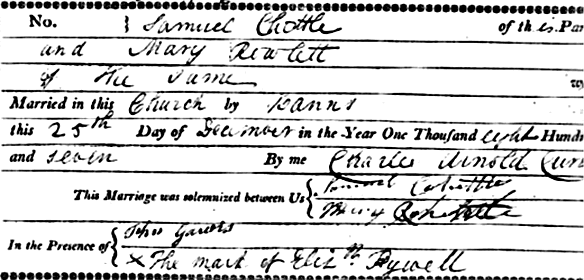 No. Samuel Chettle of this Par
and Mary Rowlett
of the Same
Married in this Church by Banns
this 25th Day of December in the Year One Thousand eight Hund
and seven By me Charles Arnold Cur
This Marriage was solemnized between Us Samuel Chettle
Mary
In the Presence of
X The mark of Elizth Pywell